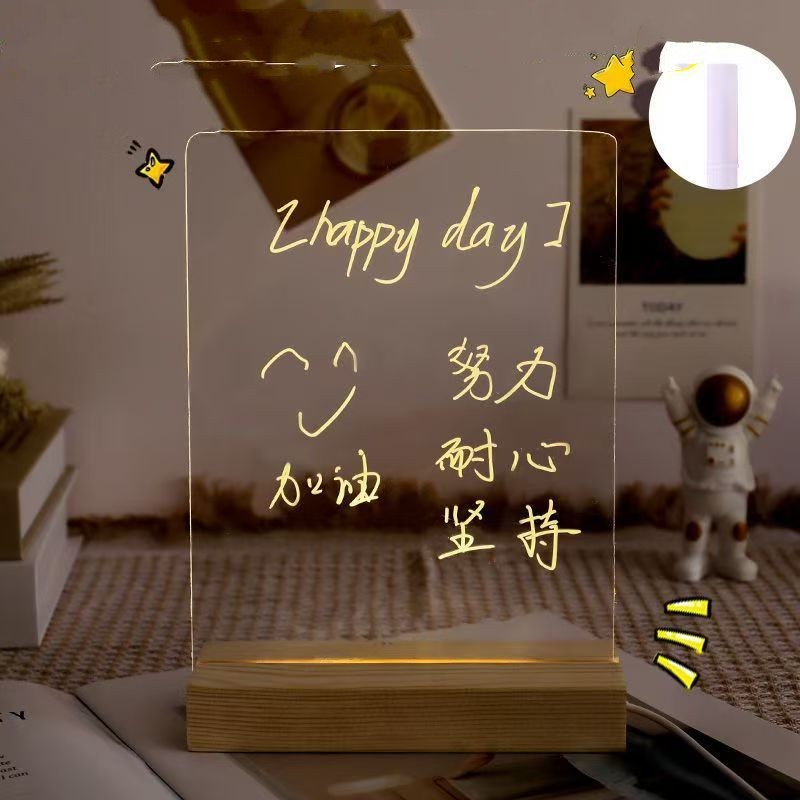 [happy day]
努力
耐心
加油
坚持
TODAY
Y